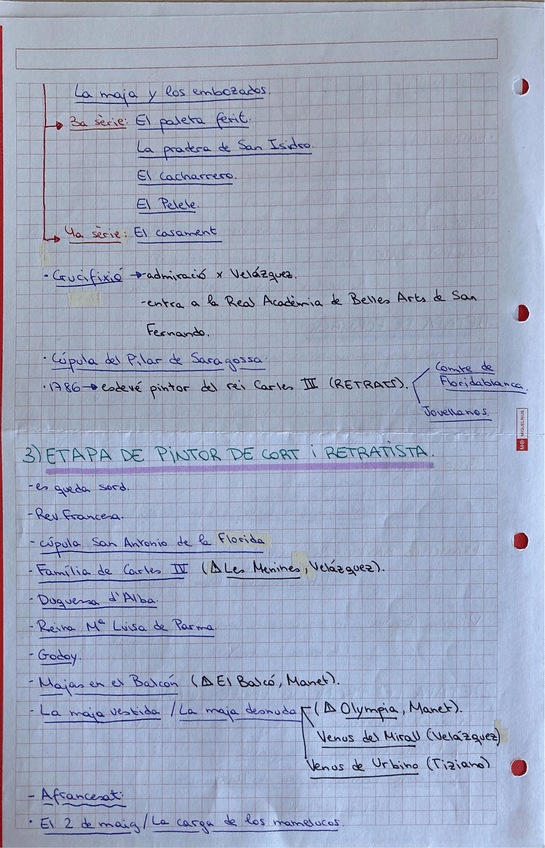 La maja y los embozados.
3a sèrie: El paleta ferit.
La pradera de San Isidro.
El cacharrero.
El Pelele.
4a sèrie: El casament
· Crucifixió → admiració x Velázquez.
-entra a la Real Acadèmia de Belles Arts de San
Fernando.
· Cúpula del Pilar de Saragossa.
· 1786 → esdevé pintor del rei Carles III (RETRATS).
Comte de
Floridablanca.
Jovellanos.
3) ETAPA DE PINTOR DE CORT i RETRATISTA.
-es queda sord.
-Rev. Francesa.
-cúpula San Antonio de la Florida
-Família de Carles IV (Δ Les Menines, Velázquez).
-Duquessa d'Alba.
-Reina Mª Luisa de Parma
-Godoy.
-Majas en el Balcón (Δ El Balcó, Manet).
-La maja vestida / La maja desnuda (Δ Olympia, Manet).
Venus del Mirall (Velázquez)
Venus de Urbino (Tiziano)
- Afrancesat:
· El 2 de maig / La carga de los mamelucos